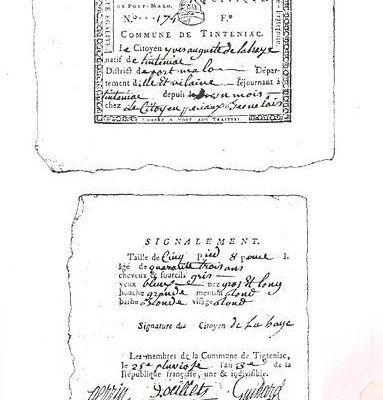 DE PORT-MALO.
N.o 174 F.o
COMMUNE DE TINTENIAC.
Le Citoyen yves auguste de la haye
natif de tinteniac
District de port malo Dépar-
tement d'ille et vilaine séjournant à
tinteniac depuis mois
chez Le Citoyen
GUERRE A MORT AUX TRAITRES
SIGNALEMENT.
Taille de Cinq pied 8 pouce l.
âgé de quarante trois ans
cheveux & sourcils gris
yeux bleus nez gros et long
bouche grande menton Rond
barbe blonde visage Rond
Signature du Citoyen de La haye
Les membres de la Commune de Tinteniac,
le 25e pluviose l'an 3e de la
République française, une & indivisible.